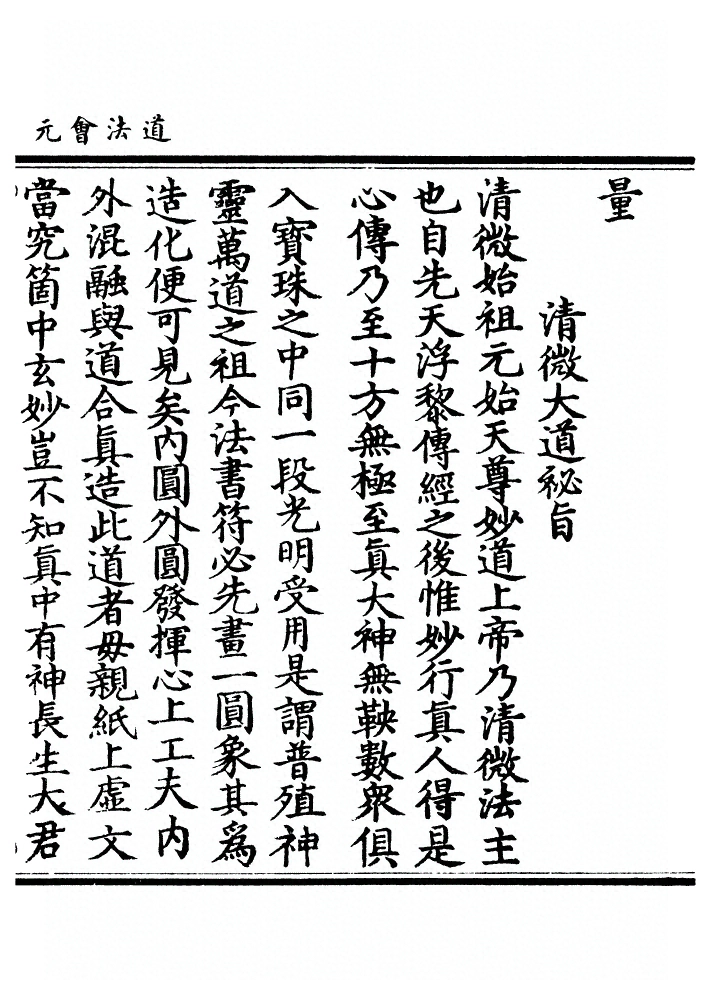 道法會元
量
清微大道祕旨
清微始祖元始天尊妙道上帝乃清微法主
也自先天浮黎傳經之後惟妙行眞人得是
心傳乃至十方無極至眞大神無鞅數衆俱
入寶珠之中同一段光明受用是謂普殖神
靈萬道之祖今法書符必先畫一圓象其爲
造化便可見矣內圓外圓發揮心上工夫內
外混融與道合眞造此道者毋親紙上虛文
當究箇中玄妙豈不知眞中有神長生大君